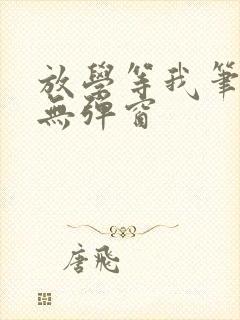 放學等我筆
無彈窗
唐飛